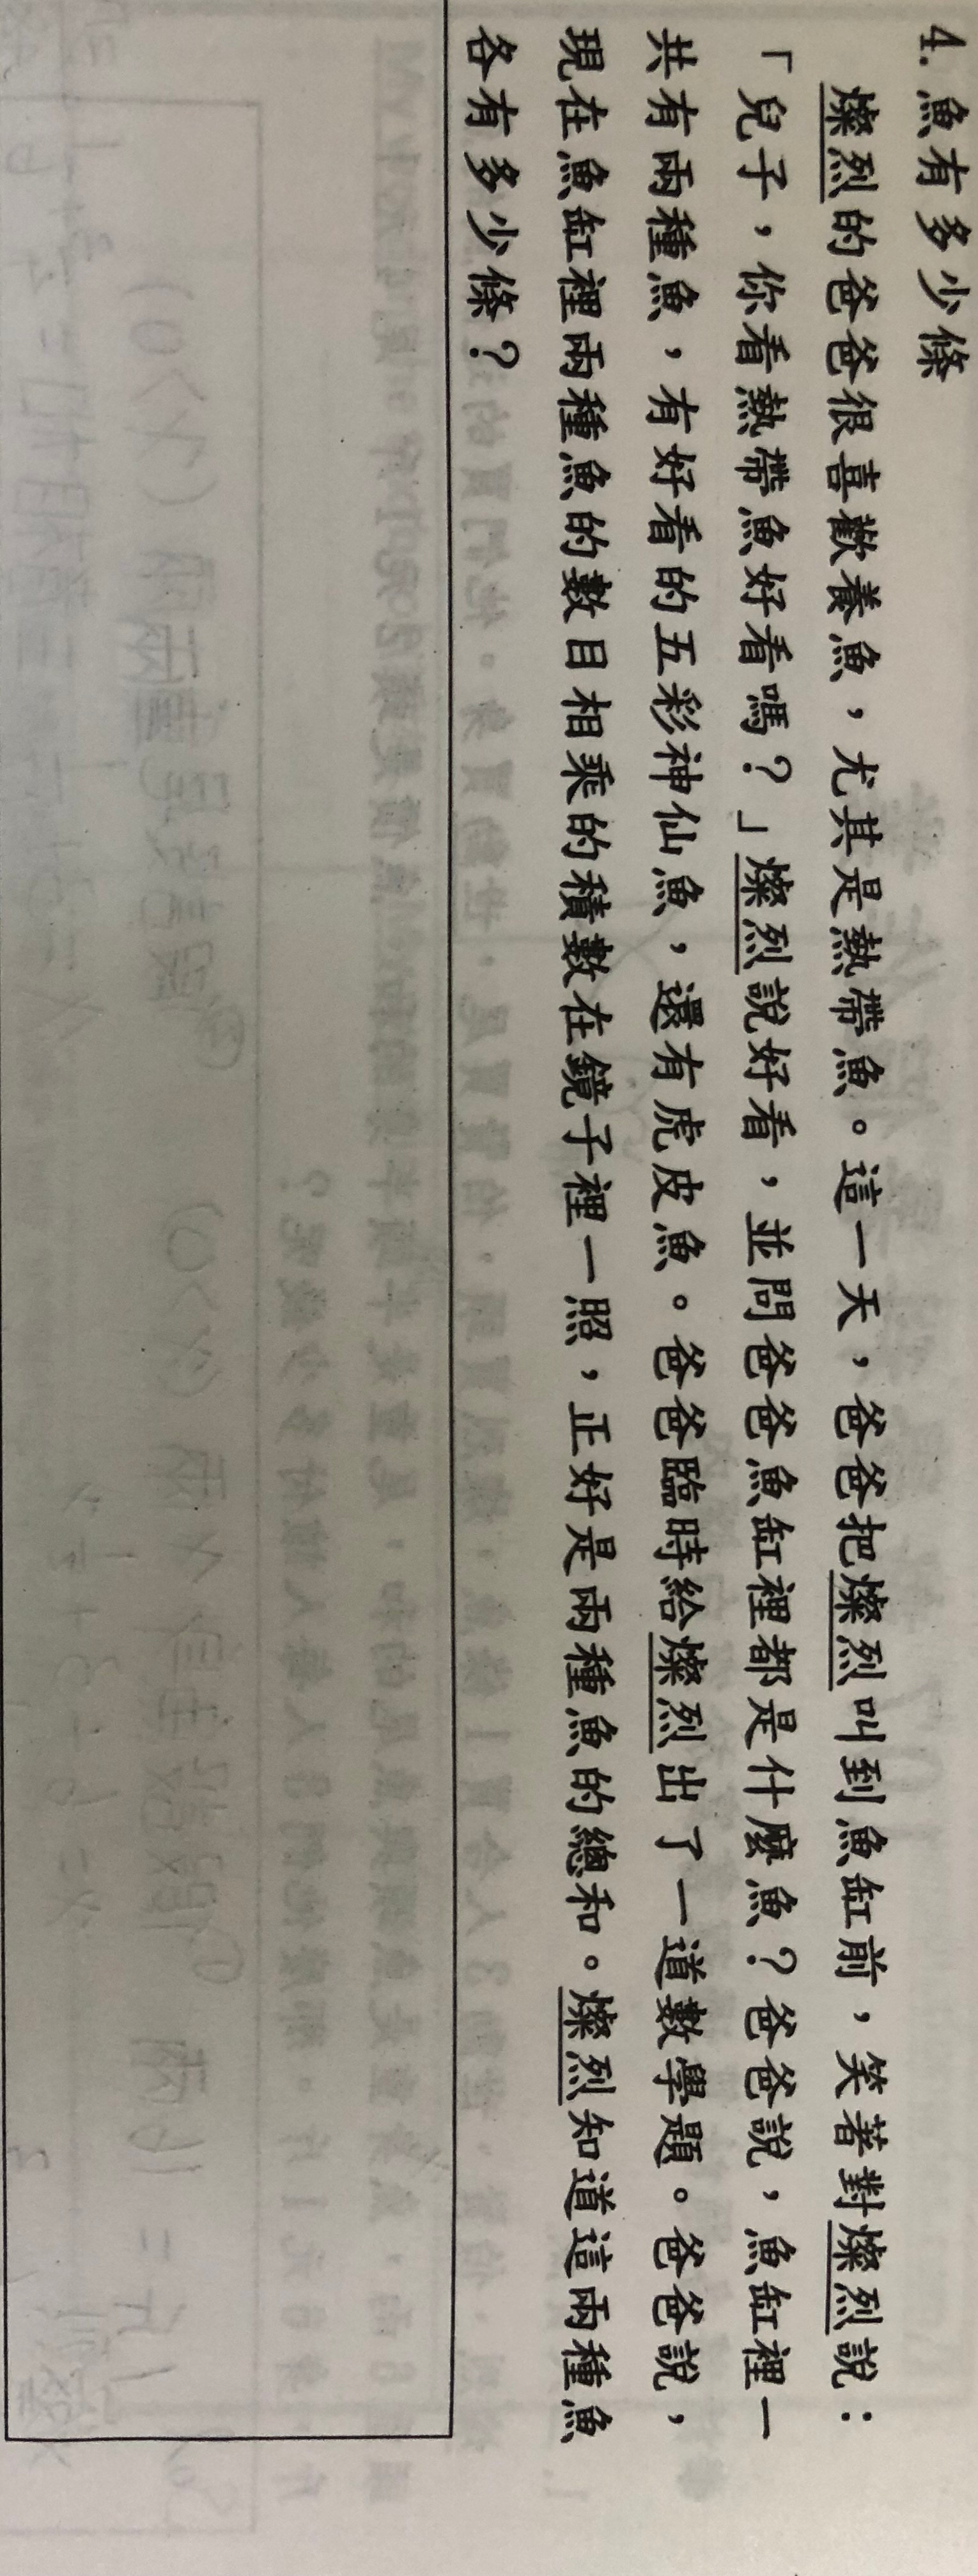 4. 魚有多少條
燦烈的爸爸很喜歡養魚，尤其是熱帶魚。這一天，爸爸把燦烈叫到魚缸前，笑著對燦烈說：
「兒子，你看熱帶魚好看嗎？」燦烈說好看，並問爸爸魚缸裡都是什麼魚？爸爸說，魚缸裡一
共有兩種魚，有好看的五彩神仙魚，還有虎皮魚。爸爸臨時給燦烈出了一道數學題。爸爸說，
現在魚缸裡兩種魚的數目相乘的積數在鏡子裡一照，正好是兩種魚的總和。燦烈知道這兩種魚
各有多少條？